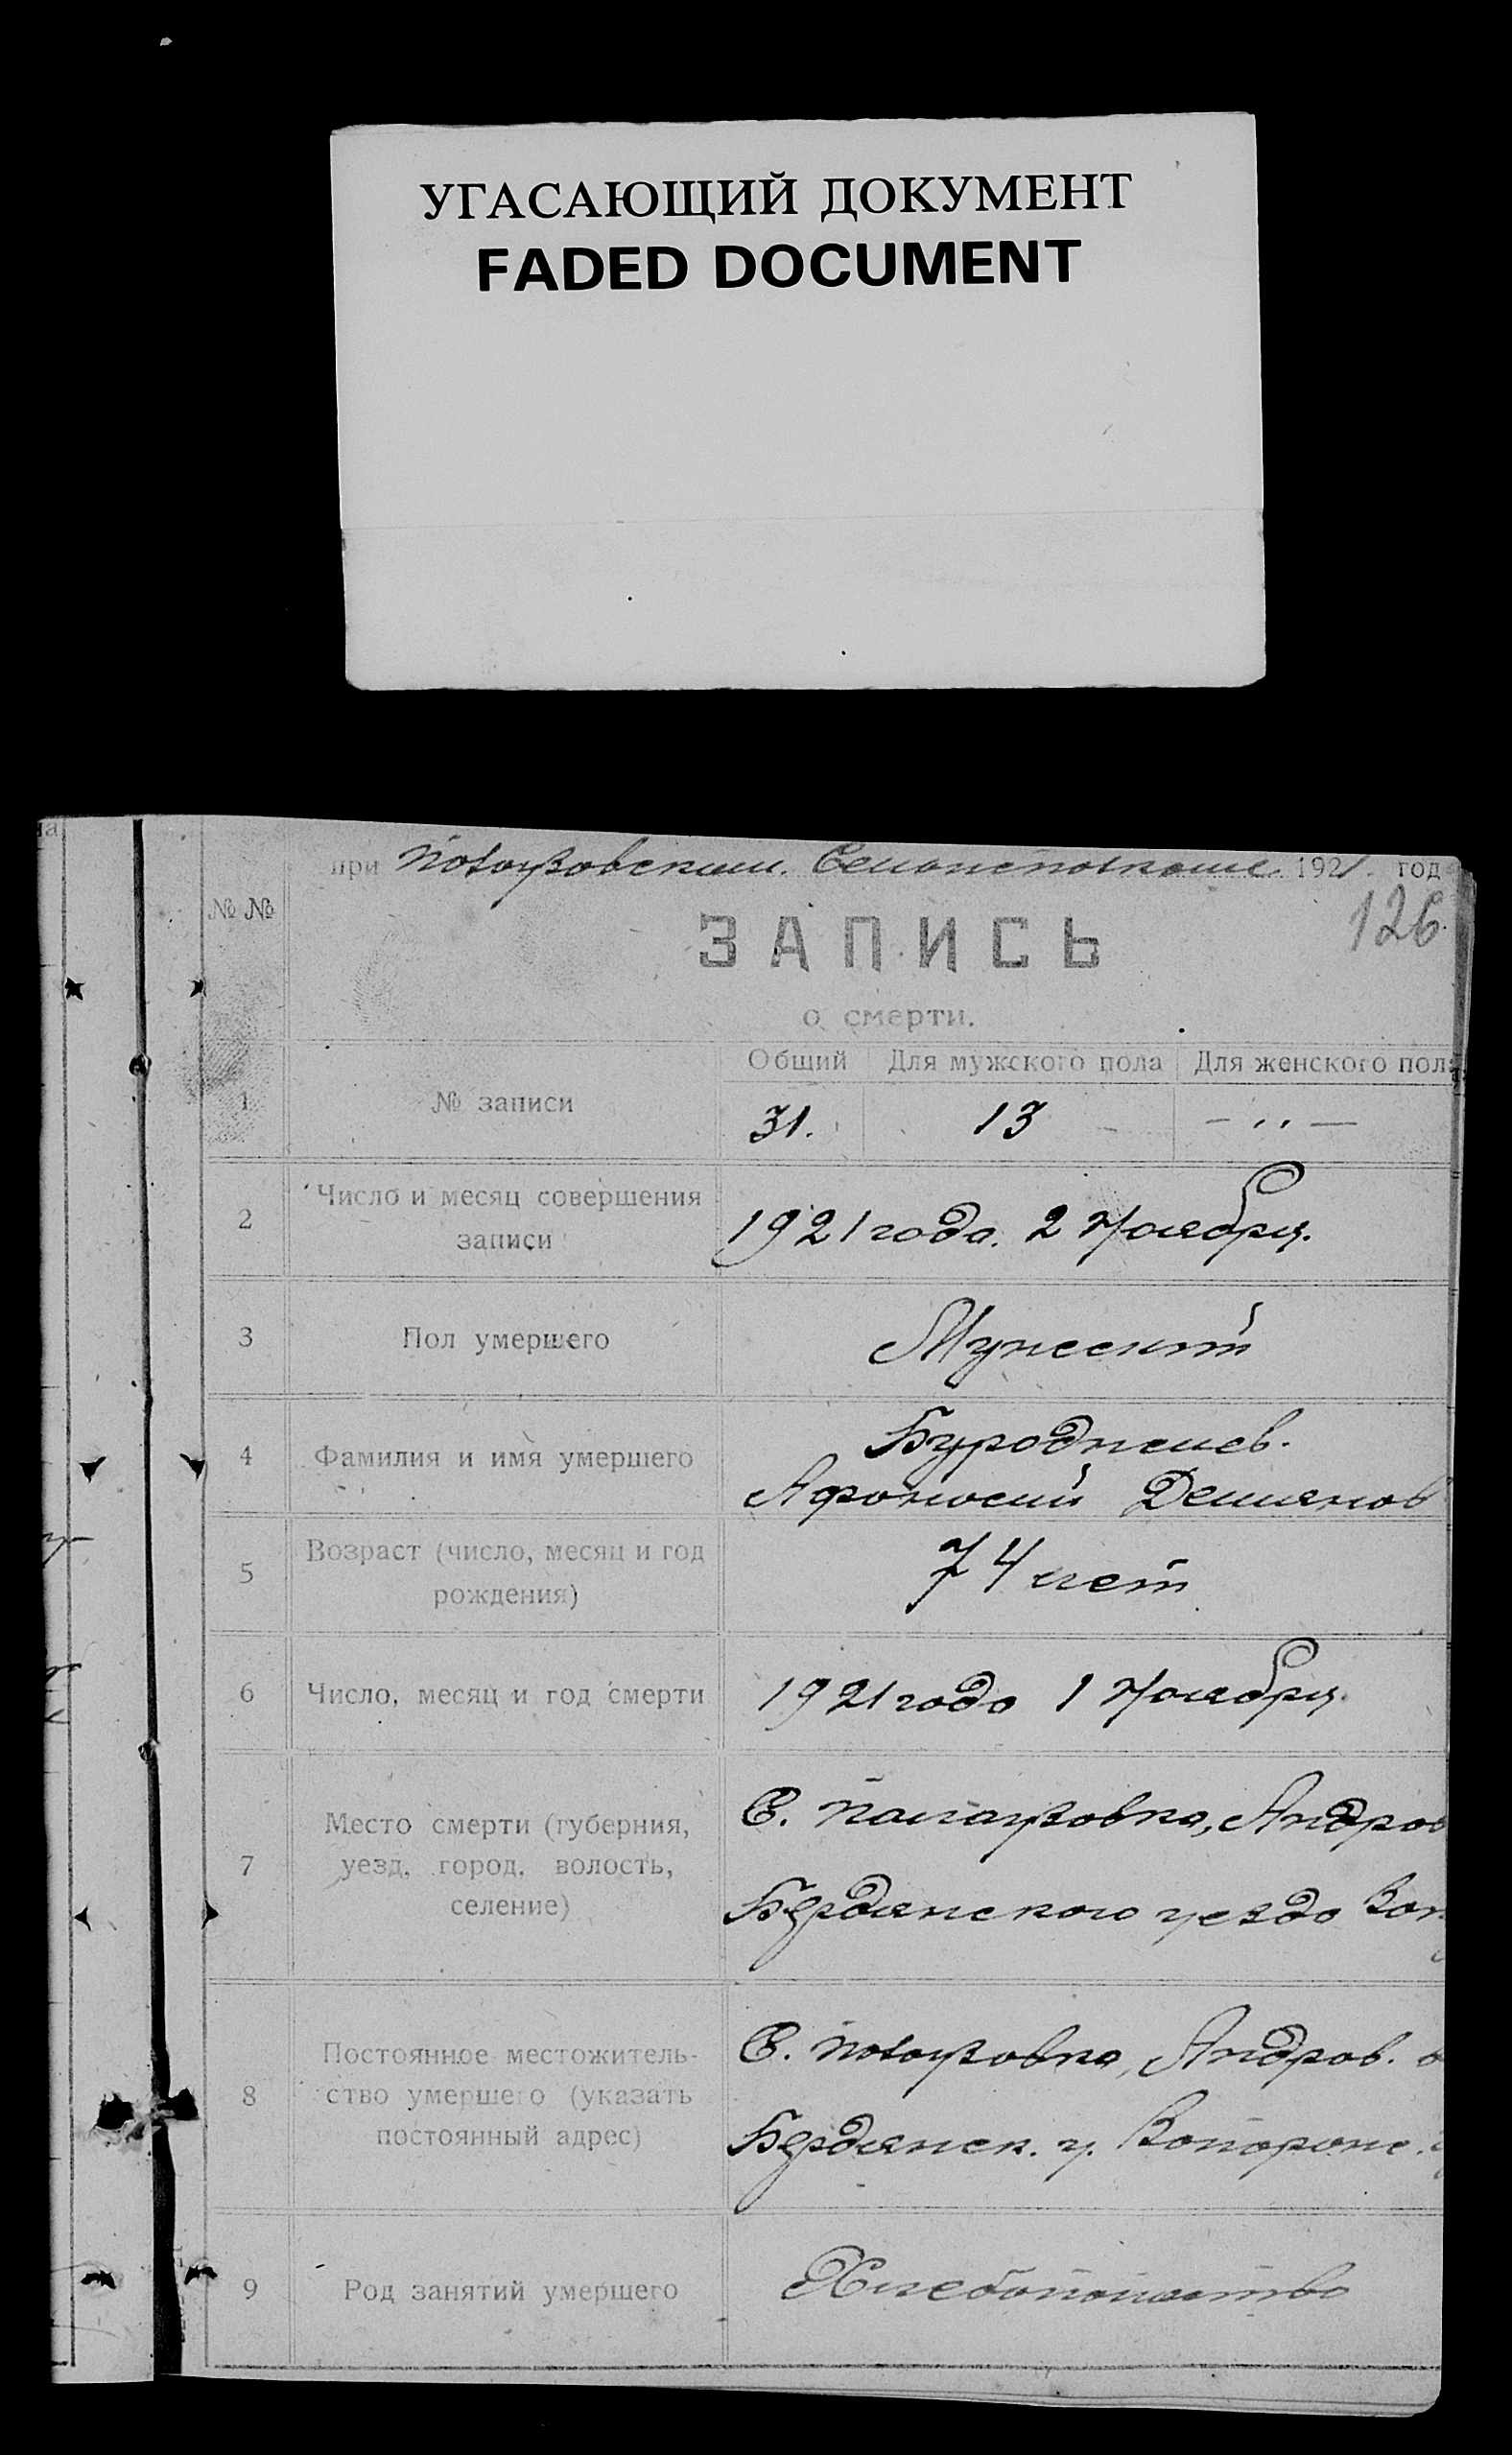 УГАСАЮЩИЙ ДОКУМЕНТ
FADED DOCUMENT
при Пологовском 1921 год
126
№ №
ЗАПИСЬ
о смерти.
Общий Для мужского пола Для женского пола
1 № записи 31. 13 — " —
2 Число и месяц совершения
записи
1921 года. 2 Ноября.
3 Пол умершего Мужской
4 Фамилия и имя умершего
Афонасий Демьянов
5 Возраст (число, месяц и год
рождения)
74 лет
6 Число, месяц и год смерти 1921 года 1 Ноября.
7 Место смерти (губерния,
уезд, город, волость,
селение)
С. Андров
Бердянского уезда Зап
8 Постоянное местожитель-
ство умершего (указать
постоянный адрес)
С. Андров. в
Бердянск. у. Запорож.
9 Род занятий умершего Хлебопашество